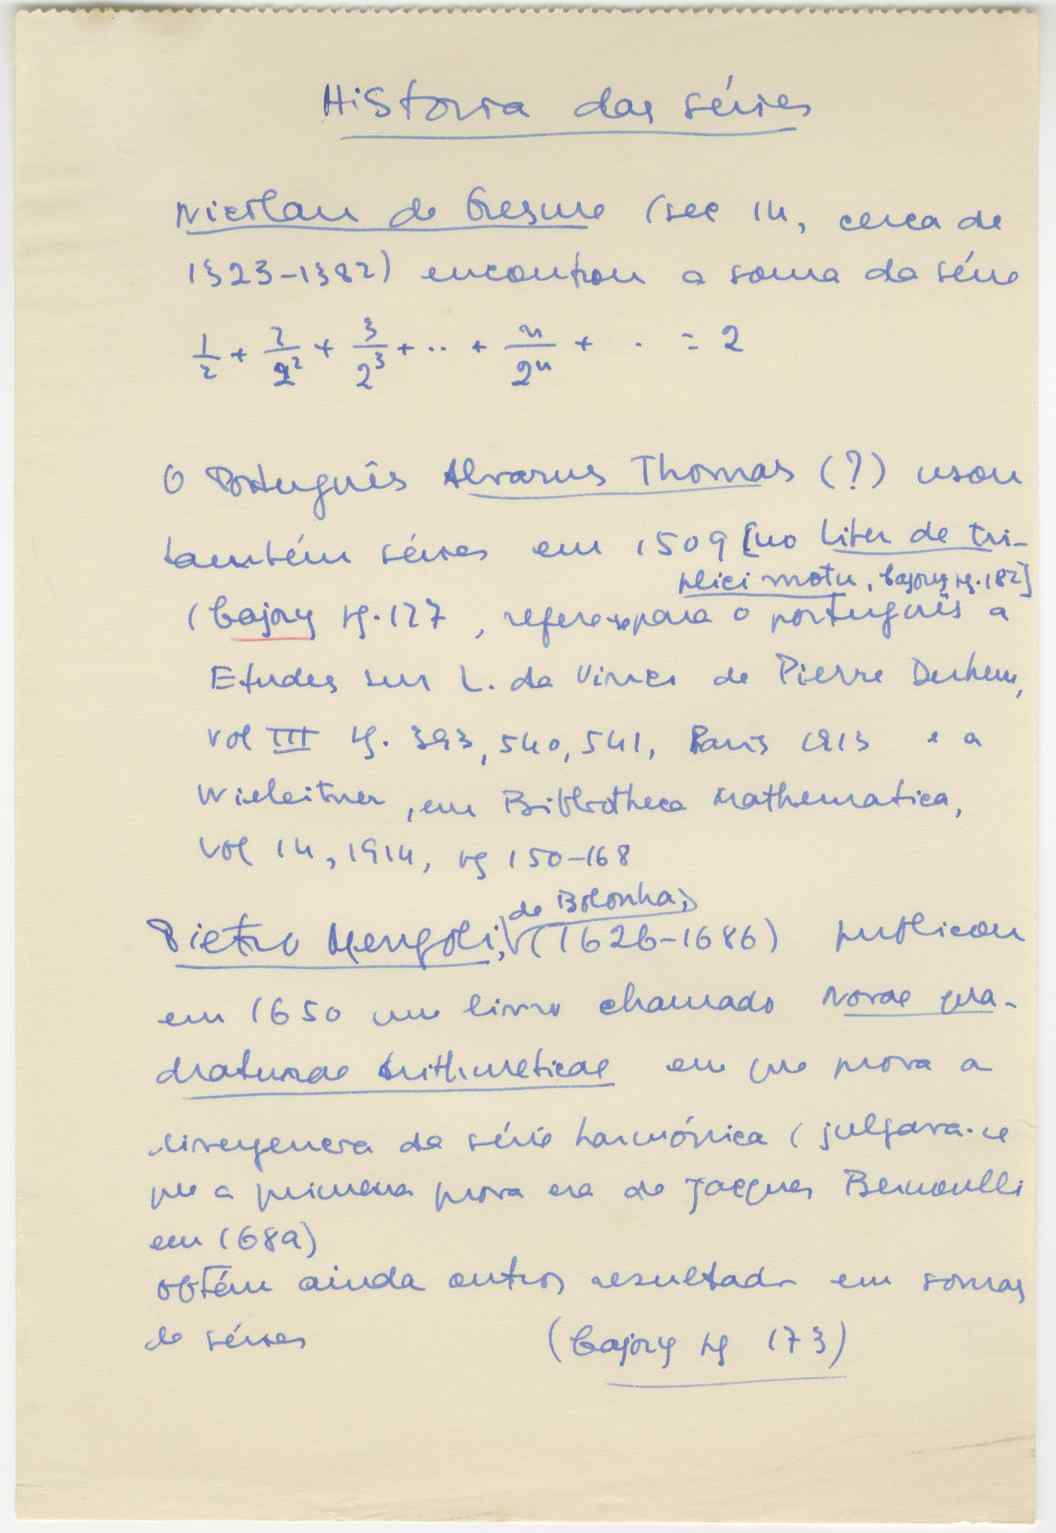 Historia das séries
Nicolau de Oresme (sec 14, cerca de
1323-1382) encontrou a soma da série
1/2 + 2/2² + 3/2³ + .. + n/2ⁿ + . = 2
O Português Alvarus Thomas (?) usou
também séries em 1509 [no Liber de tri-
plici motu, Cajory pg. 182]
(Cajory pg. 127, refere-se para o português a
Etudes sur L. da Vinci de Pierre Duhem,
vol III pg. 393, 540, 541, Paris 1913 e a
Wieleitner, em Bibliotheca Mathematica,
vol 14, 1914, pg 150-168
Pietro Mengoli, de Bolonha, (1626-1686) publicou
em 1650 um livro chamado Novae qua-
draturae arithmeticae em que prova a
divergencia da série harmónica (julgava-se
que a primeira prova era de Jacques Bernoulli
em 1689)
obtém ainda outros resultados em somas
de séries (Cajory pg 173)